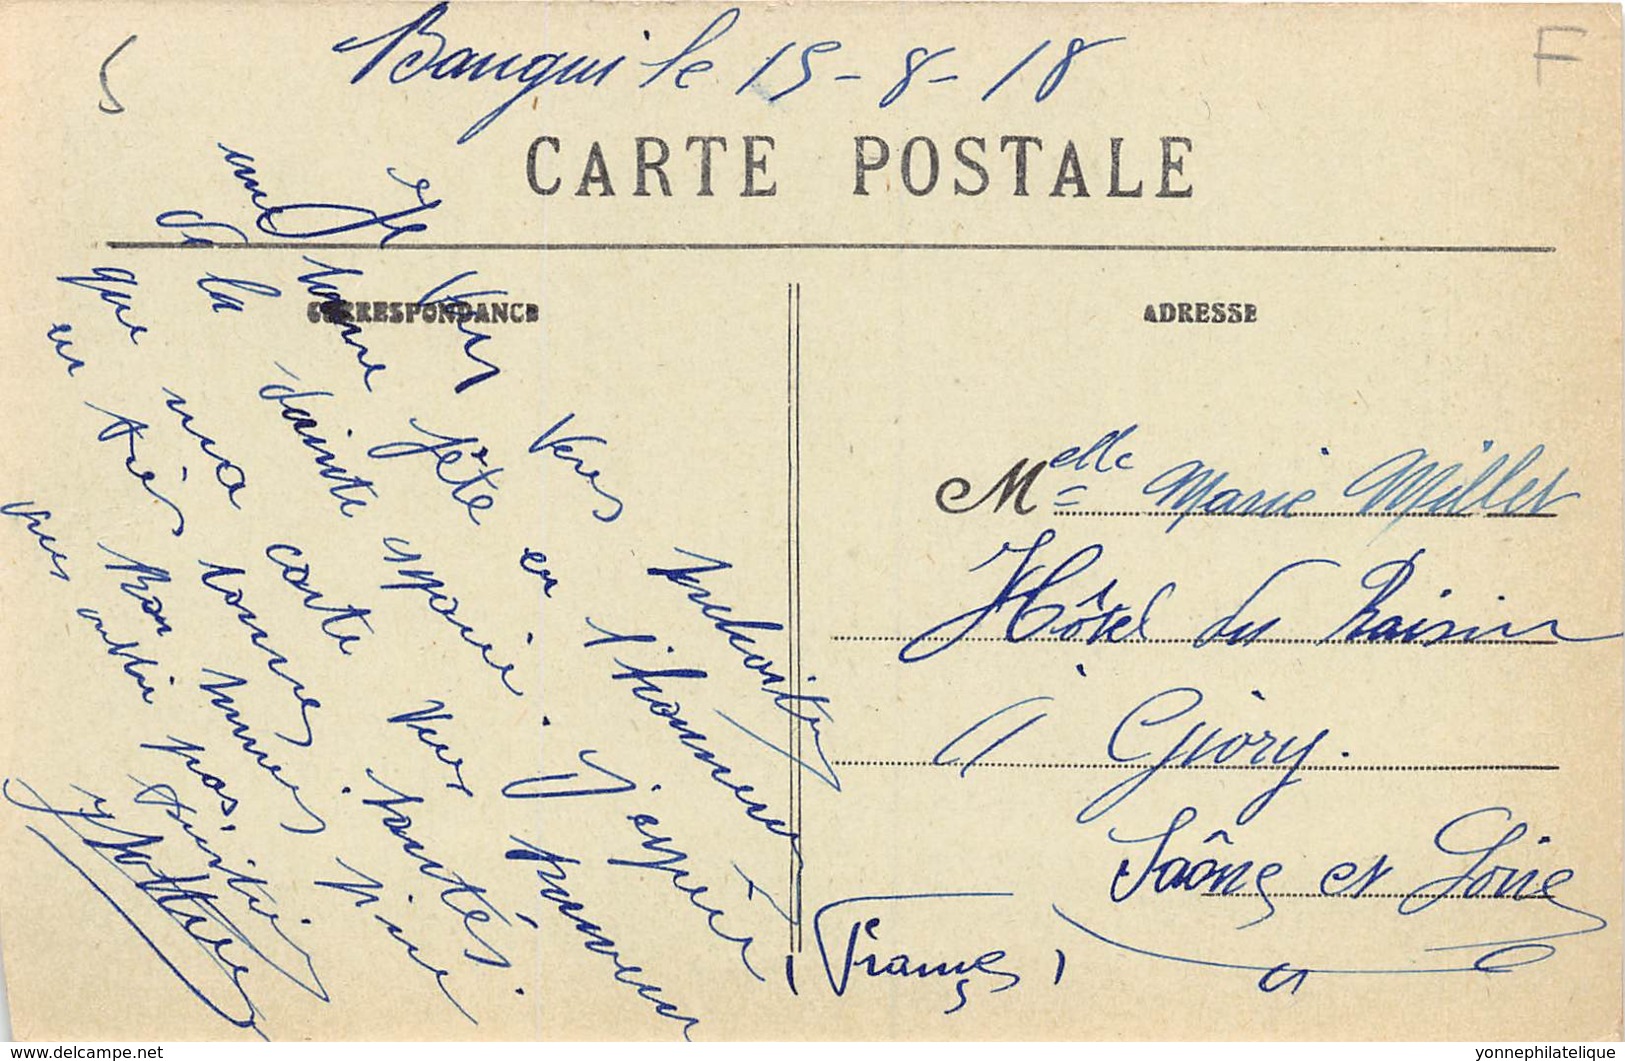 Bangui le 15-8-18
F
CARTE POSTALE
CORRESPONDANCE
ADRESSE
Je vous
une bonne fête en l'honneur
de la Sainte Marie. J'espère
que ma carte vous
en très bonnes santés.
Mon
vous oublie pas.
Melle Marie Millet
Hôtel du Raisin
à Givry.
Saône et Loire
(France)
www.delcampe.net
yonnephilatelique